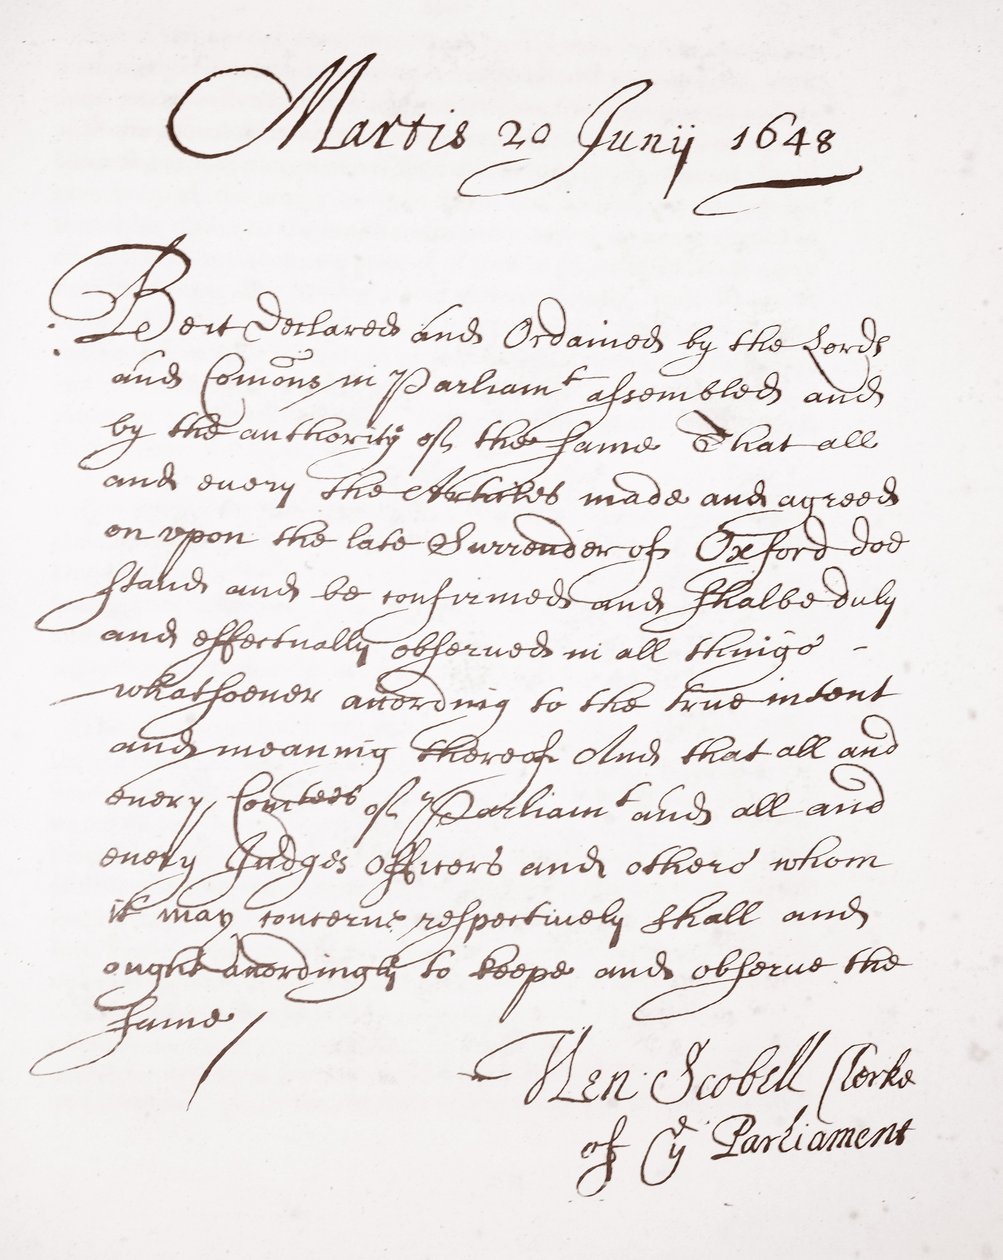 Martis 20 Junij 1648
Beit Declared and Ordained by the Lords
and Com̃ons in Parliamt assembled and
by the authority of the same That all
and euery the Articles made and agreed
on vpon the late Surrender of Oxford doe
stand and be confirmed and shalbe duly
and effectually obserued in all things -
whatsoeuer according to the true intent
and meaning thereof And that all and
euery Com̃tees of Parliamt and all and
euery Judges Officers and others whom
it may concerne respectiuely shall and
ought accordingly to keepe and obserue the
same /
Hen: Scobell Clerke
of ye Parliament